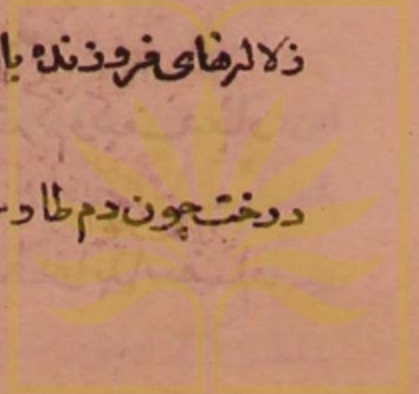 ز لالهای فروزنده با
درخت چون دم طاو